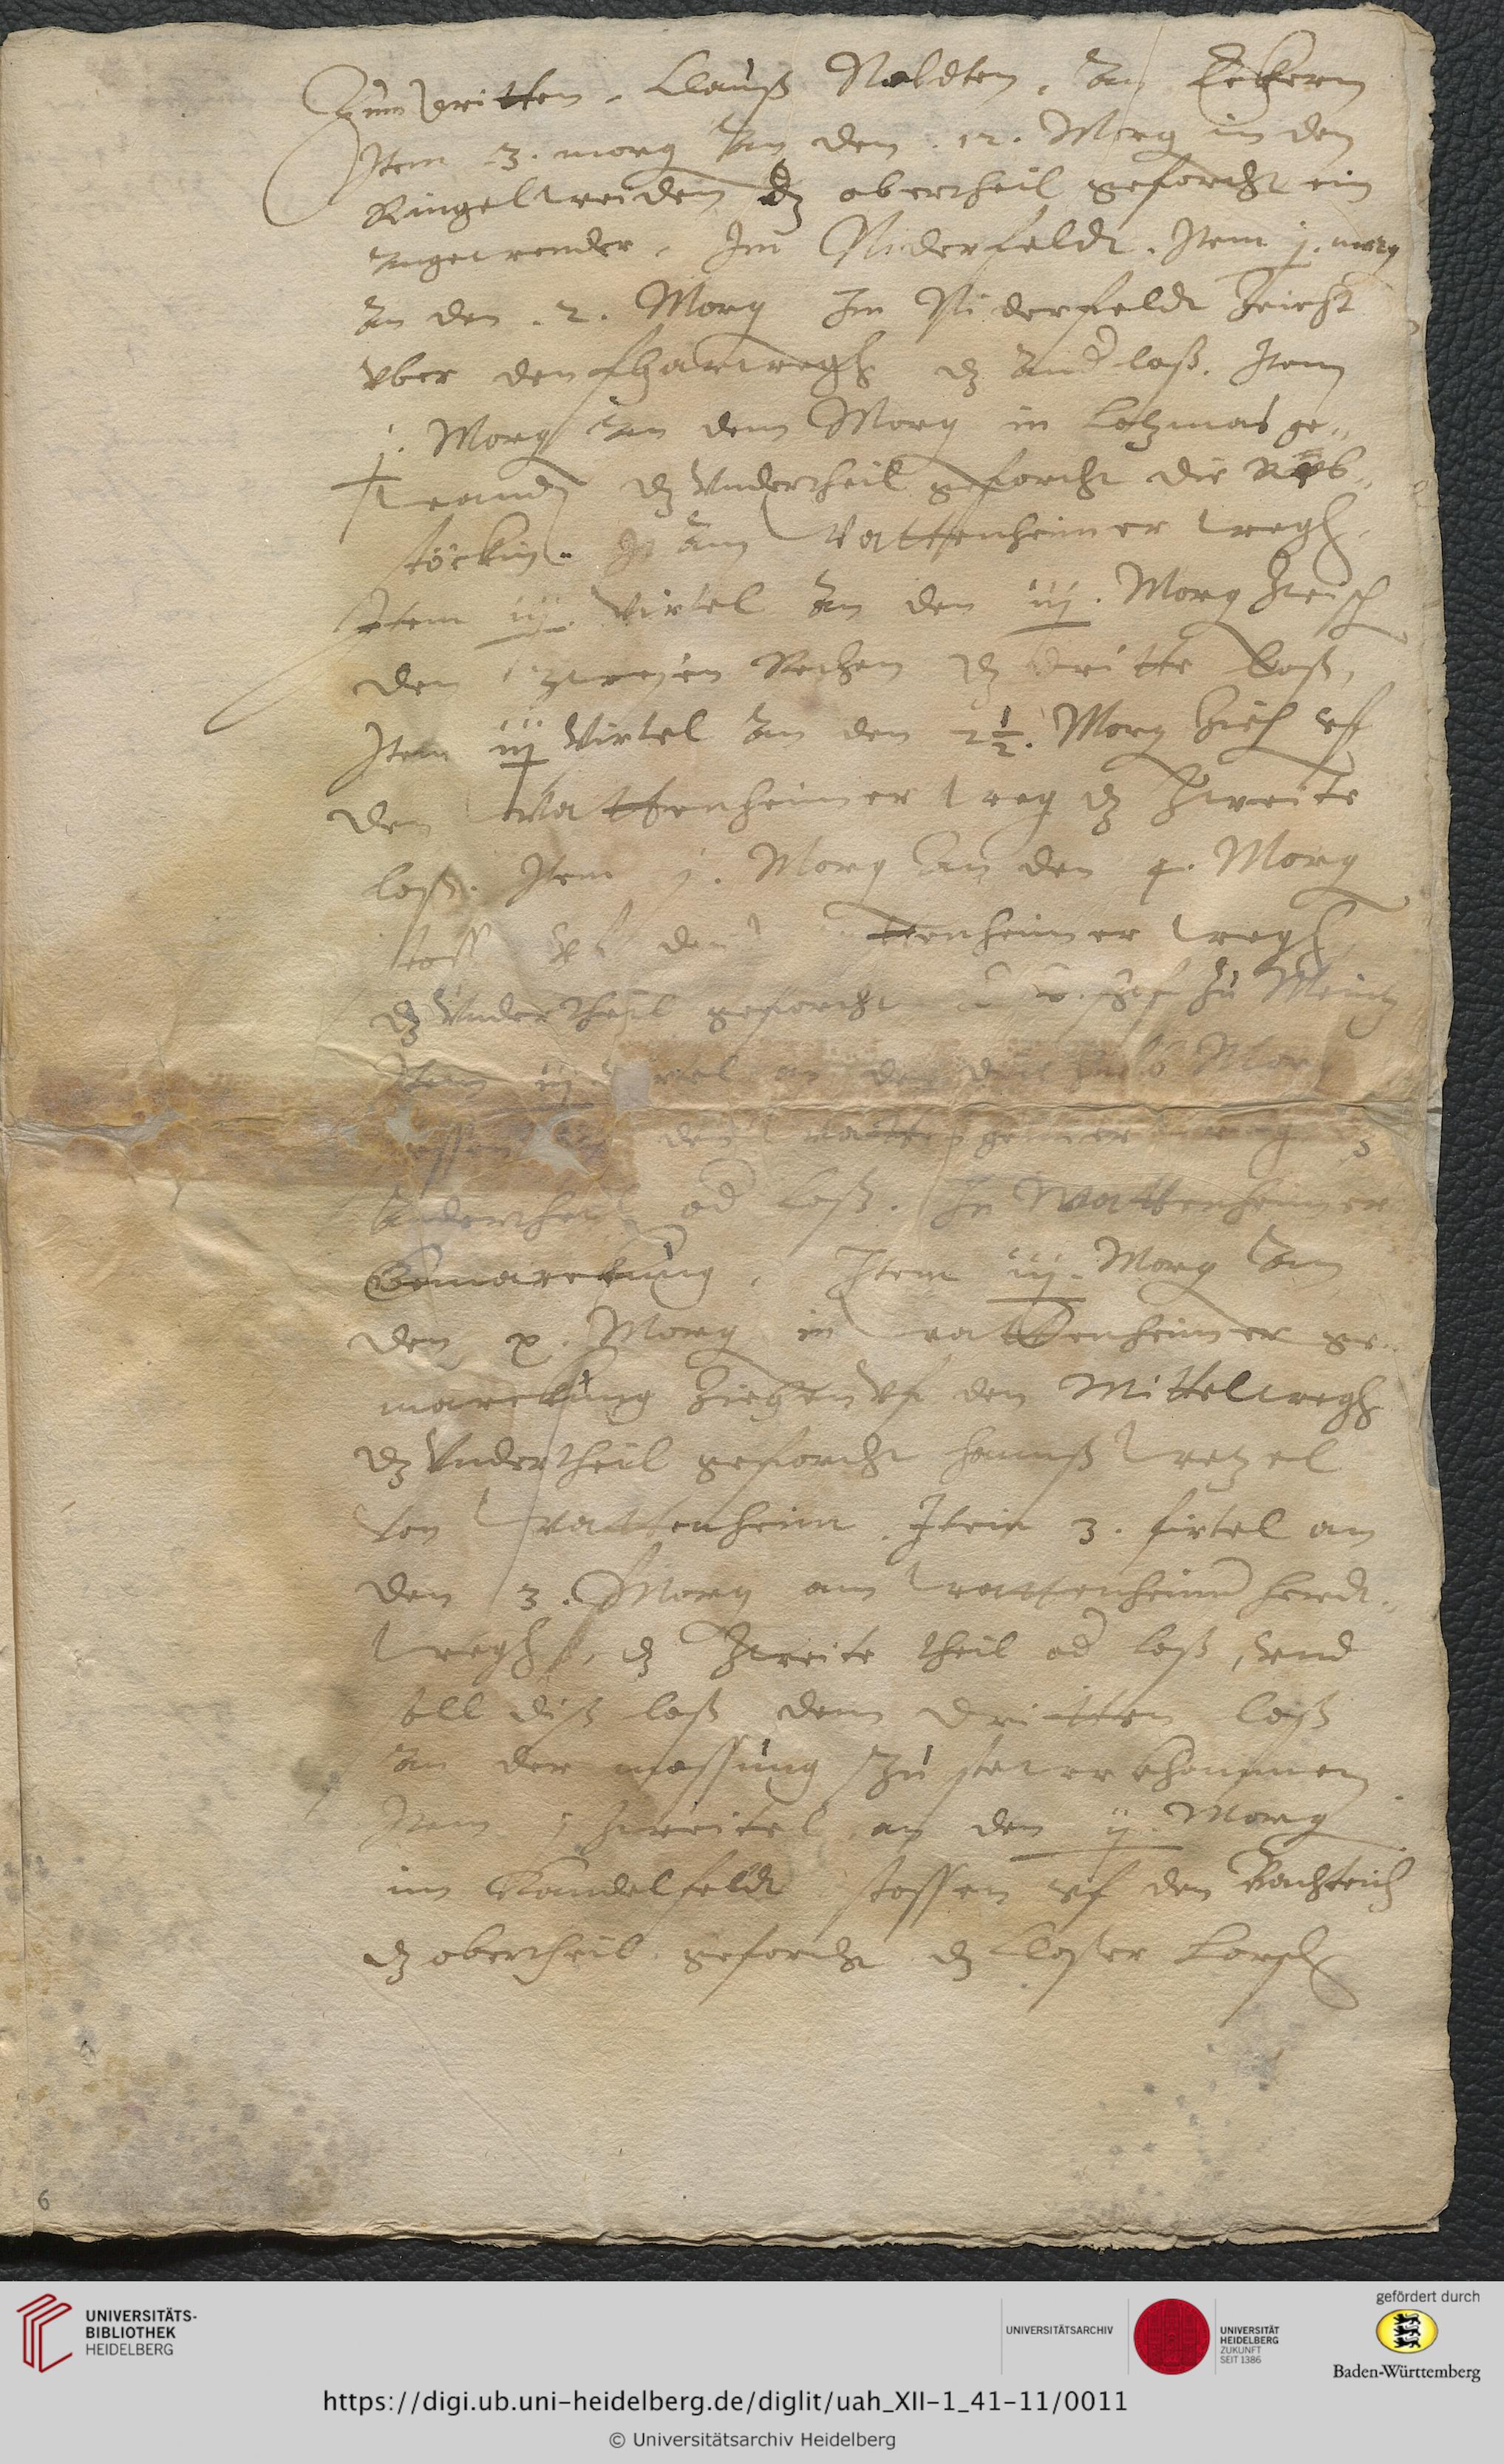 Zum Dritten, Clauß Noldten, An Eckern
Item 3. morg An den .12. Morg in den
Ringelweiden dz obertheil geforcht ein
Angewender. Im Niderfeldt. Item j. morg
An den .2. Morg Im Niderfeldt Zeicht
vber den fharwegh dz And loß. Item
j. Morg An dem Morg in ge„
wand dz Vndertheil geforcht die
stöckin. Am Wattenheimer wegh.
Item iij. Virtel An den iij. Morg Zwisch
den zweien Rechen dz dritte loß,
Item iij Virtel An den 2½. Morg Zieh vf
den Wattenheimer weg dz Zweite
loß. Item j. Morg An den 4. Morg
stoss vf den ttenheimer wegh
dz Vndertheil geforcht zu Meintz
Item iij an den Morg
den
Vndertheil od loß. In Wattenheimer
Gemarckung. Item iij. Morg An
den x. Morg in Wattenheimer ge„
marckung Ziehen vf den Mittelwegh
dz Vndertheil geforcht hannß Wetzel
von Wattenheim. Item 3. firtel an
den 3. Morg am Wattenheimer herdt„
wegh, dz Zweite theil od loß, vnd
soll diß loß dem dritten loß
An der messung Zu khommen
Item j Zweitel an den ij. Morg
im Kandelfeldt stossen vf den
dz obertheil geforcht dz Closter Lorsch
6
UNIVERSITÄTS-
BIBLIOTHEK
HEIDELBERG
UNIVERSITÄTSARCHIV
UNIVERSITÄT
HEIDELBERG
ZUKUNFT
SEIT 1386
gefördert durch
Baden-Württemberg
https://digi.ub.uni-heidelberg.de/diglit/uah_XII-1_41-11/0011
© Universitätsarchiv Heidelberg